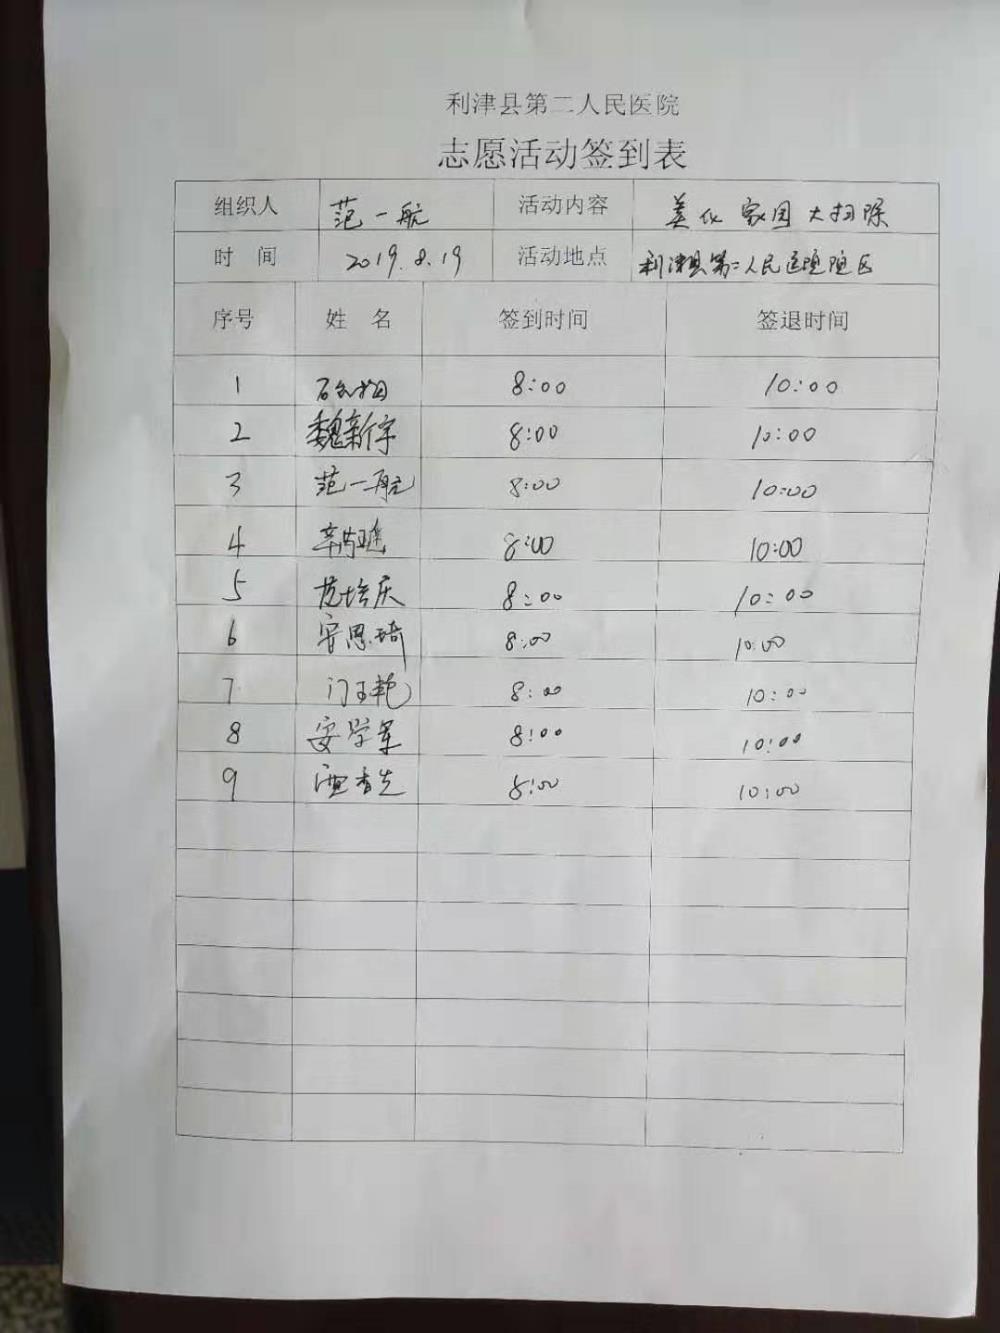 利津县第二人民医院
志愿活动签到表
组织人 范一航 活动内容 美化家园大扫除
时 间 2019.8.19 活动地点 利津县第二人民医院院区
序号 姓 名 签到时间 签退时间
1 8:00 10:00
2 魏新宇 8:00 10:00
3 范一航 8:00 10:00
4 8:00 10:00
5 范培庆 8:00 10:00
6 安思琦 8:00 10:00
7 门玉艳 8:00 10:00
8 安学军 8:00 10:00
9 8:00 10:00